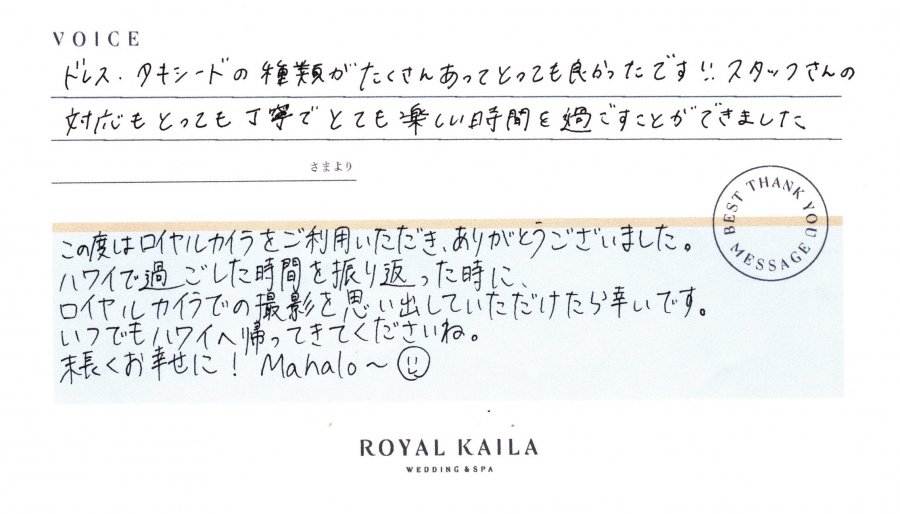 VOICE
ドレス・タキシードの種類がたくさんあってとっても良かったです!! スタッフさんの
対応もとっても丁寧でとても楽しい時間を過ごすことができました
さまより
BEST THANK YOU MESSAGE
この度はロイヤルカイラをご利用いただき、ありがとうございました。
ハワイで過ごした時間を振り返った時に、
ロイヤルカイラでの撮影を思い出していただけたら幸いです。
いつでもハワイへ帰ってきてくださいね。
末長くお幸せに! Mahalo~
ROYAL KAILA
WEDDING & SPA